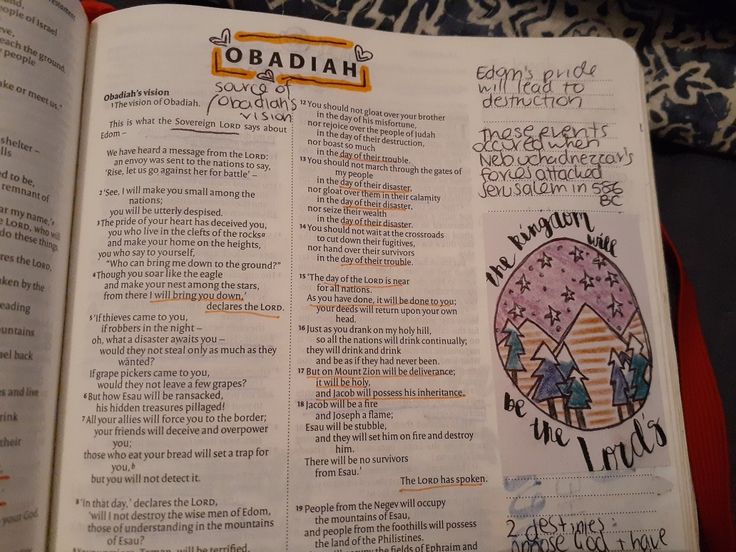 people of Israel
each the ground.
people
ake or meet us.'
shelter –
ed to be,
remnant of
ar my name,
LORD, who will
do these things.
res the LORD,
aken by the
eading
untains
ael back
es and live
rink
their
your God.
OBADIAH
Obadiah's vision
1 The vision of Obadiah.
source of
Obadiah's
vision
This is what the Sovereign LORD says about
Edom –
We have heard a message from the LORD:
an envoy was sent to the nations to say,
'Rise, let us go against her for battle' –
2 'See, I will make you small among the
nations;
you will be utterly despised.
3 The pride of your heart has deceived you,
you who live in the clefts of the rocks a
and make your home on the heights,
you who say to yourself,
"Who can bring me down to the ground?"
4 Though you soar like the eagle
and make your nest among the stars,
from there I will bring you down,'
declares the LORD.
5 'If thieves came to you,
if robbers in the night –
oh, what a disaster awaits you –
would they not steal only as much as they
wanted?
If grape pickers came to you,
would they not leave a few grapes?
6 But how Esau will be ransacked,
his hidden treasures pillaged!
7 All your allies will force you to the border;
your friends will deceive and overpower
you;
those who eat your bread will set a trap for
you, b
but you will not detect it.
8 'In that day,' declares the LORD,
'will I not destroy the wise men of Edom,
those of understanding in the mountains
of Esau?
Teman, will be terrified,
12 You should not gloat over your brother
in the day of his misfortune,
nor rejoice over the people of Judah
in the day of their destruction,
nor boast so much
in the day of their trouble.
13 You should not march through the gates of
my people
in the day of their disaster,
nor gloat over them in their calamity
in the day of their disaster,
nor seize their wealth
in the day of their disaster.
14 You should not wait at the crossroads
to cut down their fugitives,
nor hand over their survivors
in the day of their trouble.
15 'The day of the LORD is near
for all nations.
As you have done, it will be done to you;
your deeds will return upon your own
head.
16 Just as you drank on my holy hill,
so all the nations will drink continually;
they will drink and drink
and be as if they had never been.
17 But on Mount Zion will be deliverance;
it will be holy,
and Jacob will possess his inheritance.
18 Jacob will be a fire
and Joseph a flame;
Esau will be stubble,
and they will set him on fire and destroy
him.
There will be no survivors
from Esau.'
The LORD has spoken.
19 People from the Negev will occupy
the mountains of Esau,
and people from the foothills will possess
the land of the Philistines.
occupy the fields of Ephraim and
Edom's pride
will lead to
destruction
These events
occured when
Nebuchadnezzar's
forces attacked
Jerusalem in 586
BC
the kingdom
will
be the
Lords
2 destinies: